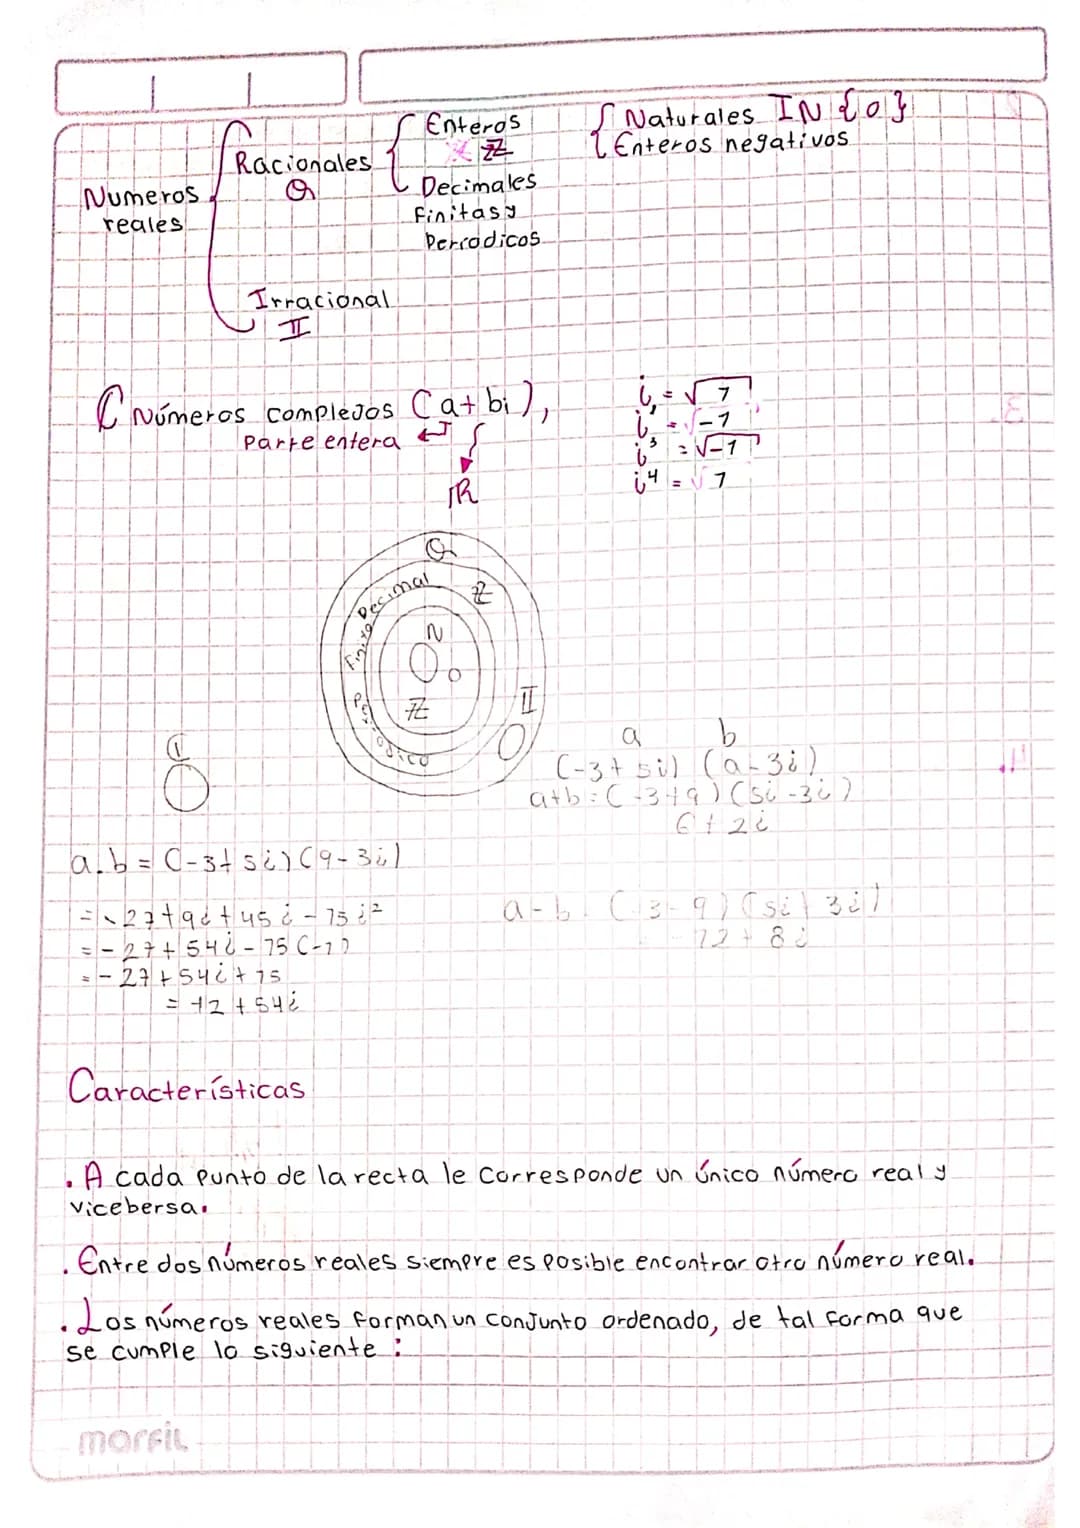 Numeros reales
Racionales
Q
Irracional
II
Enteros
Z
Decimales
finitas y
Perrodicos
Naturales IN {0}
Enteros negativos
C Números complejos (a+bi),
Parte entera
IR
i, = √1
i = √-1
i³ = √-1
i⁴ = √1
Q
Decimal
Z
Finito
N
0
Z
II
Periodico
1
a b
(-3+5i) (9-3i)
a+b=(-3+9)(5i-3i)
6+2i
a.b=(-3+5i)(9-3i)
=-27+9i+45i-15i²
=-27+54i-15(-1)
=-27+54i+15
=12+54i
a-b (3-9)(5i+3i)
-12+8i
Características
. A cada punto de la recta le corresponde un único número real y
vicebersa.
. Entre dos números reales siempre es posible encontrar otro número real.
. Los números reales forman un conjunto ordenado, de tal forma que
se cumple lo siguiente:
morfil